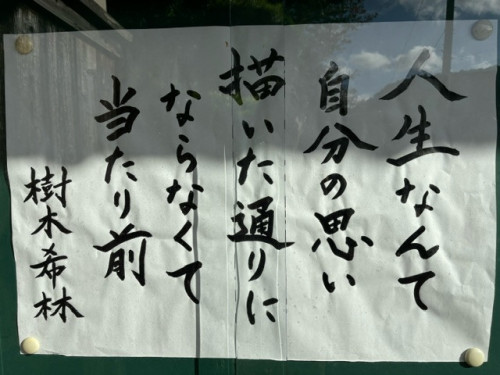 人生なんて
自分の思い
描いた通りに
ならなくて
当たり前
樹木希林